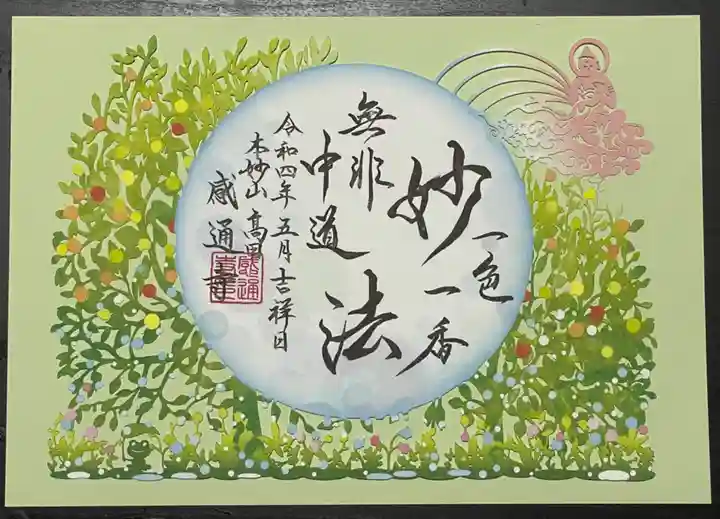 一色一香
妙法
無非中道
令和四年五月吉祥日
本妙山 高田
感通寺
感通寺